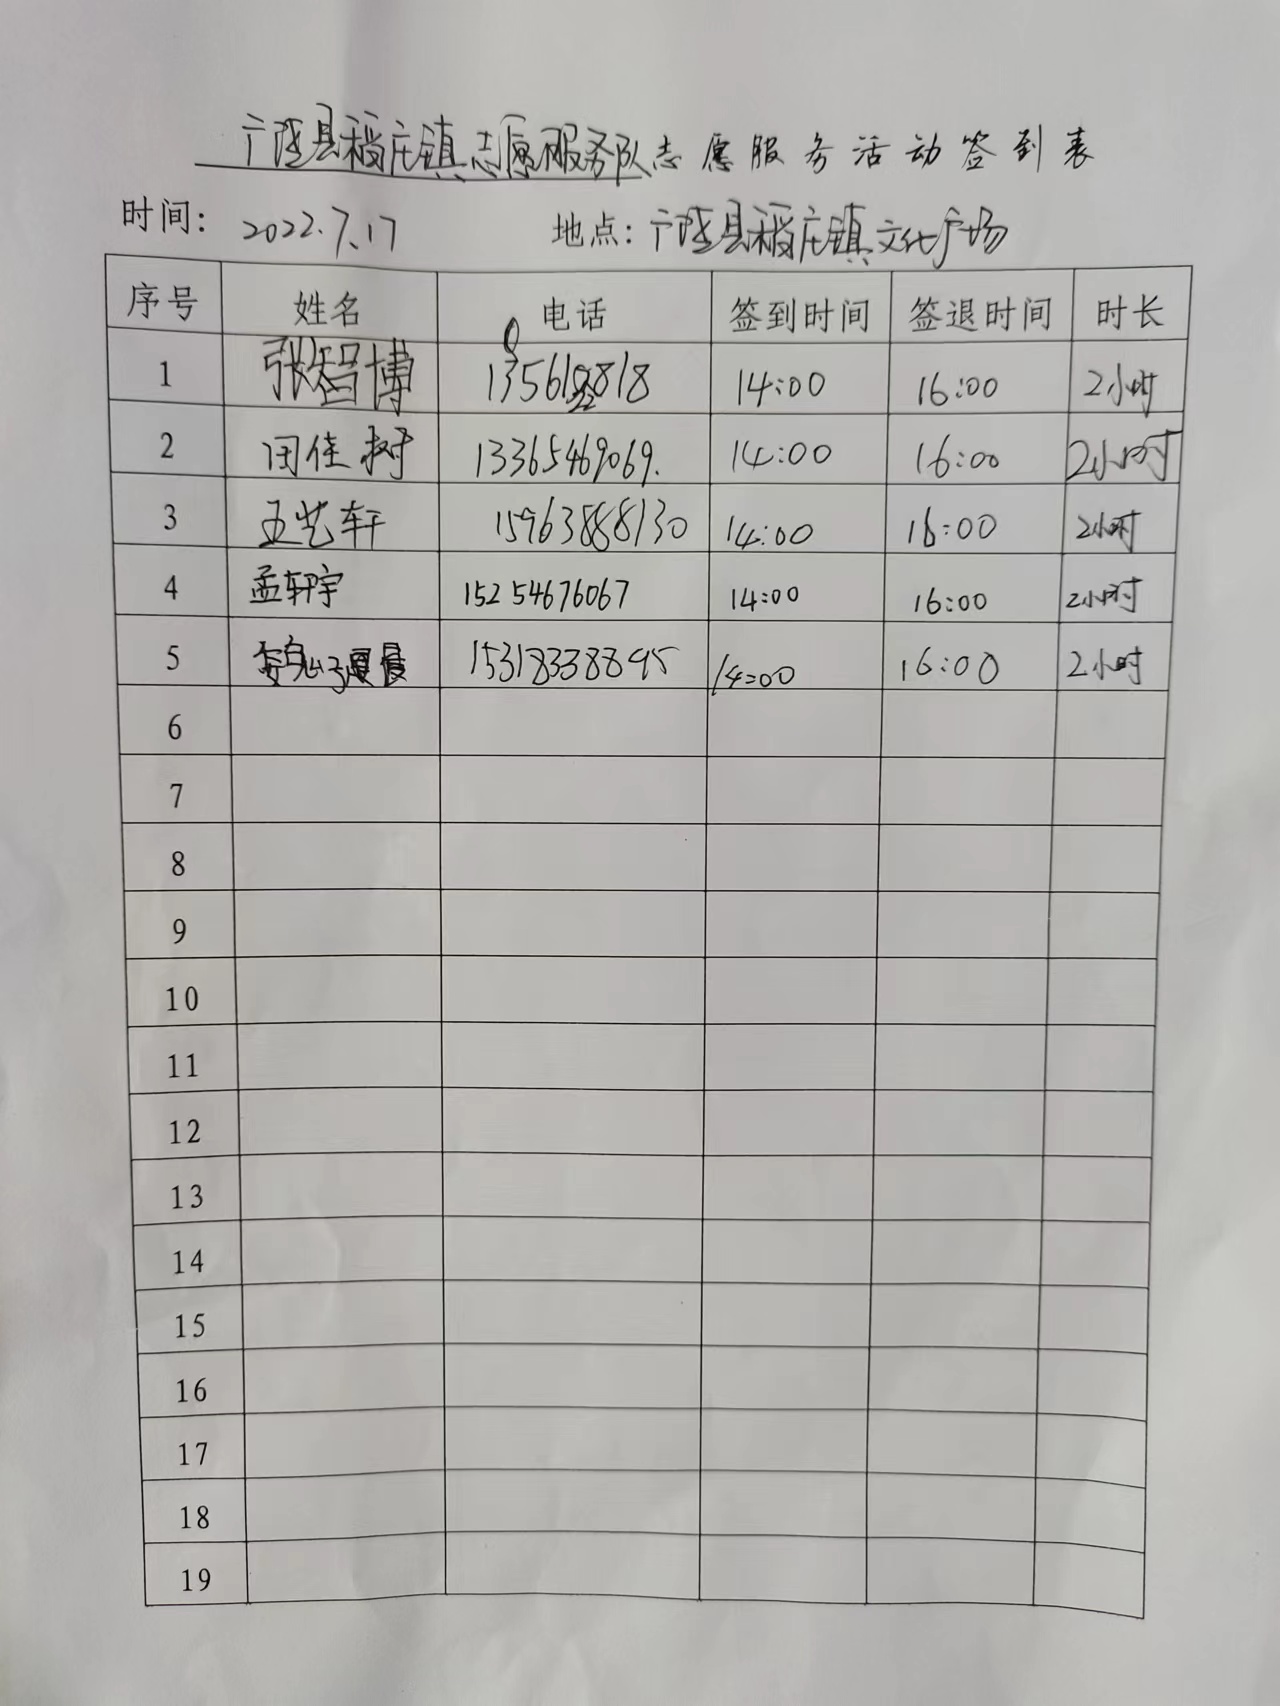 广饶县稻庄镇志愿服务队志愿服务活动签到表
时间: 2022.7.17 地点: 广饶县稻庄镇文化广场
序号 姓名 电话 签到时间 签退时间 时长
1 张智博 14:00 16:00 2小时
2 闫佳树 13365469069. 14:00 16:00 2小时
3 王艺轩 15963888130 14:00 16:00 2小时
4 孟轩宇 15254676067 14:00 16:00 2小时
5 15318338895 14:00 16:00 2小时
6
7
8
9
10
11
12
13
14
15
16
17
18
19